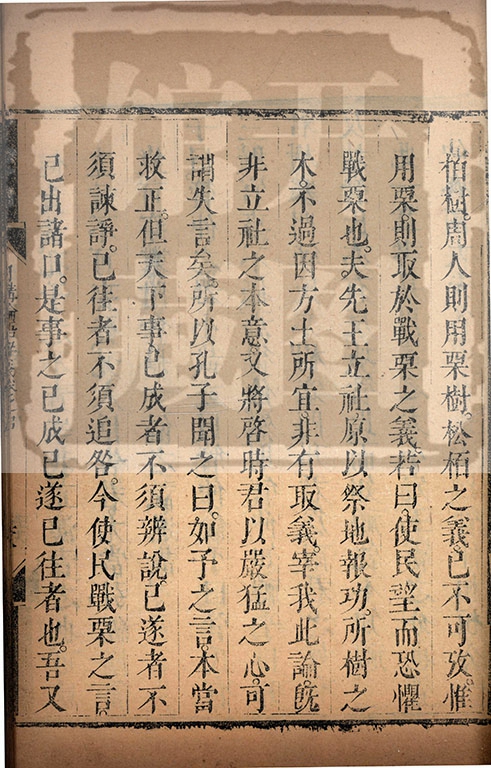 柏樹。周人則用栗樹。松柏之義。已不可攷。惟
用栗。則取於戰栗之義。若曰。使民望而恐懼
戰栗也。夫先王立社。原以祭地報功。所樹之
木。不過因方土所宜。非有取義。宰我此論。旣
非立社之本意。又將啓時君以嚴猛之心。可
謂失言矣。所以孔子聞之曰。如予之言。本當
救正。但天下事。已成者不須辨說。已遂者不
須諫諍。已往者不須追咎。今使民戰栗之言。
已出諸口。是事之已成已遂已往者也。吾又